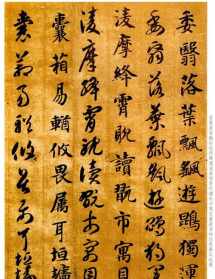 委翳落葉飄飄遊鵾獨運
委翳落葉飄飄遊鵾獨運
凌摩絳霄耽讀翫市寓目
凌摩絳霄耽讀翫市寓目
囊箱易輶攸畏屬耳垣牆
囊箱易輶攸畏屬耳垣牆